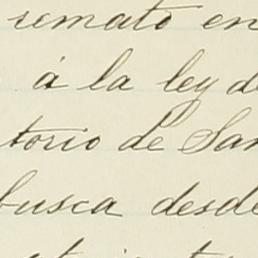 remató en
á la ley de
torio de San
busca desde